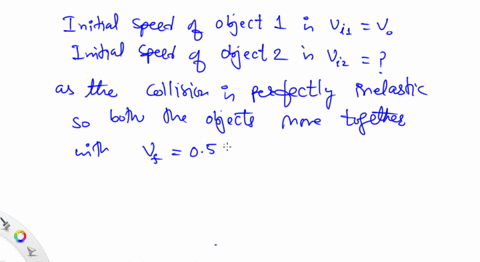 Initial speed of object 1 is v_i1 = v_0
Initial speed of object 2 is v_i2 = ?
as the collision is perfectly inelastic
so both the objects move together
with v_f = 0.5